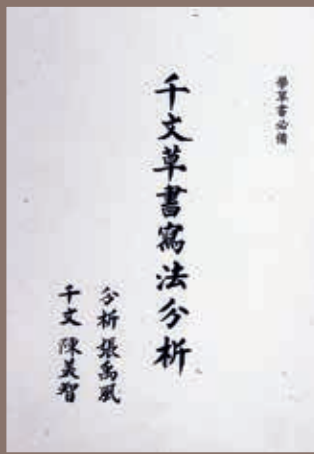 學草書必備
千文草書寫法分析
分析 張禹風
千文 陳美智